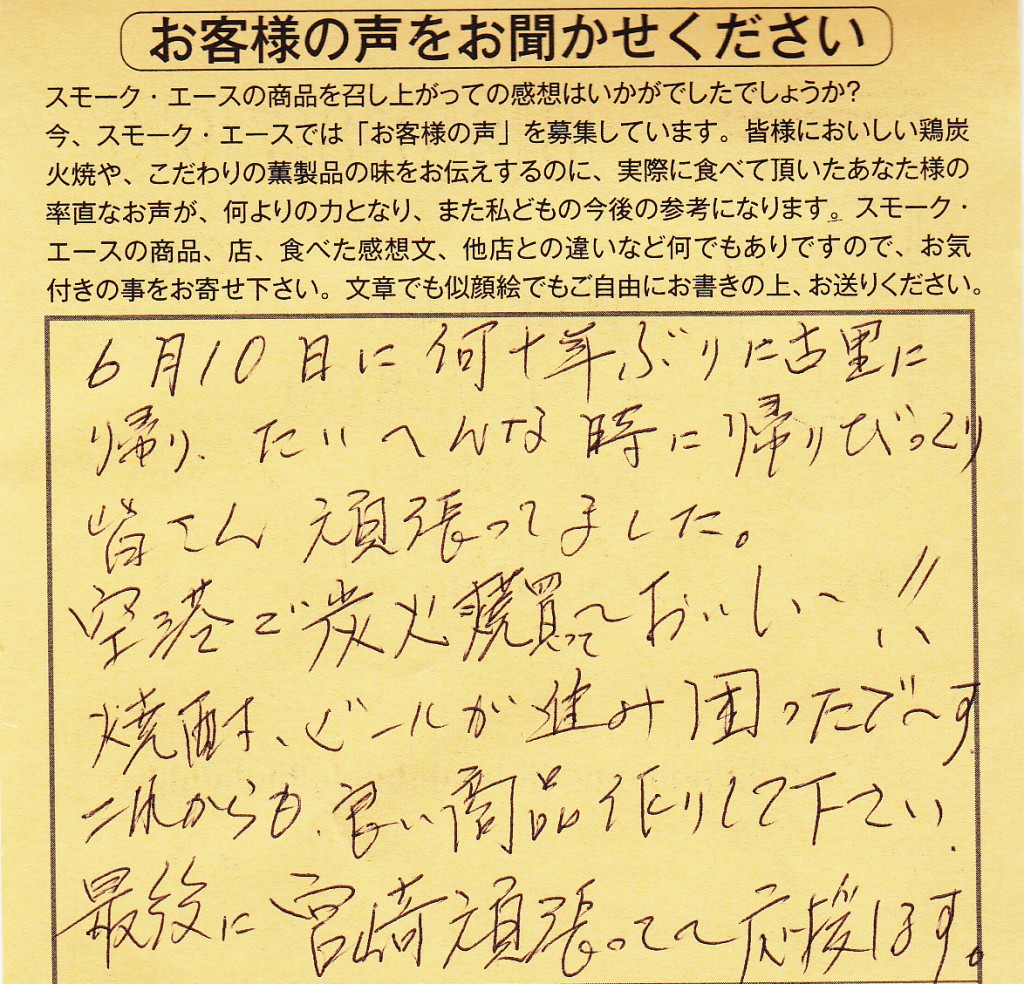 お客様の声をお聞かせください
スモーク・エースの商品を召し上がっての感想はいかがでしたでしょうか?
今、スモーク・エースでは「お客様の声」を募集しています。皆様においしい鶏炭
火焼や、こだわりの薫製品の味をお伝えするのに、実際に食べて頂いたあなた様の
率直なお声が、何よりの力となり、また私どもの今後の参考になります。スモーク・
エースの商品、店、食べた感想文、他店との違いなど何でもありですので、お気
付きの事をお寄せ下さい。文章でも似顔絵でもご自由にお書きの上、お送りください。
6月10日に何十年ぶりに古里に
帰り、たいへんな時に帰りびっくり
皆さん頑張ってました。
空港で炭火焼買っておいし〜!!
焼酎、ビールが進み困ったで〜す
これからも、良い商品作りして下さい.
最後に宮崎頑張って〜応援します。